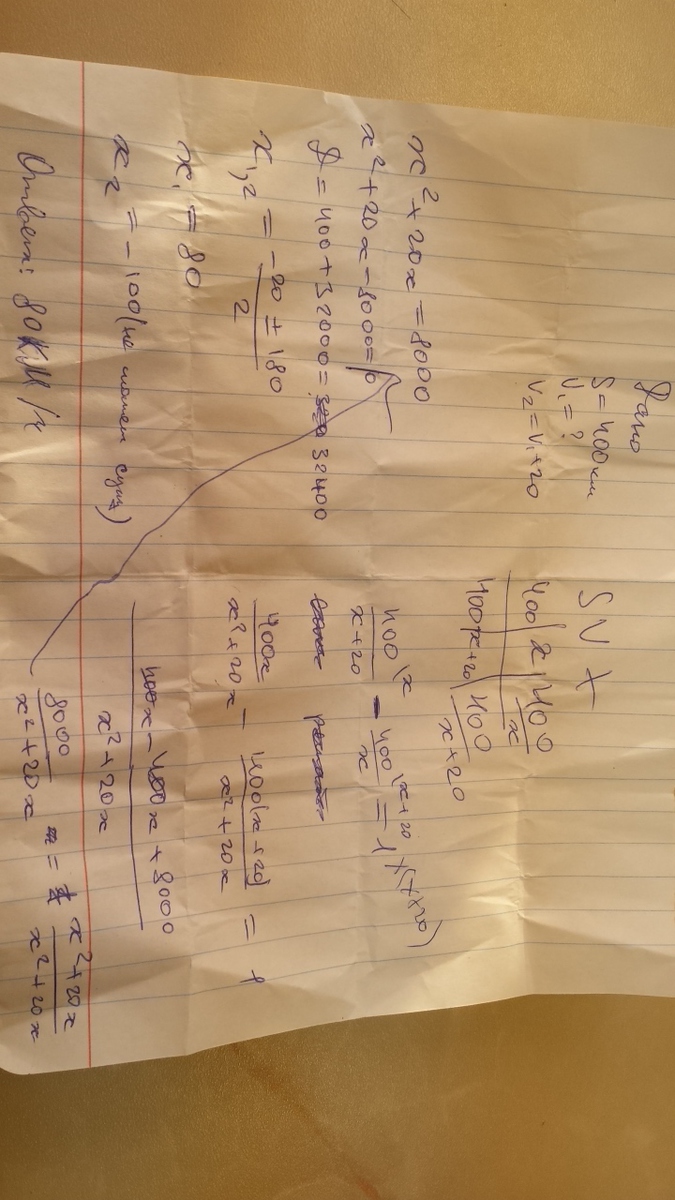 Дано
S = 400 км
V₁ = ?
V₂ = V₁ + 20
S V t
400 | x | 400/x
400 | x+20 | 400/(x+20)
400\x/(x+20) - 400\x+20/x = 1 x(x+20)
400x/(x²+20x) - 400(x+20)/(x²+20x) = 1
(400x - 400x + 8000)/(x²+20x)
8000/(x²+20x) = (x²+20x)/(x²+20x)
x² + 20x = 8000
x² + 20x - 8000 = 0
D = 400 + 32000 = 32400
x₁,₂ = (-20 ± 180)/2
x₁ = 80
x₂ = -100 (не может сущ)
Ответ: 80 км/ч